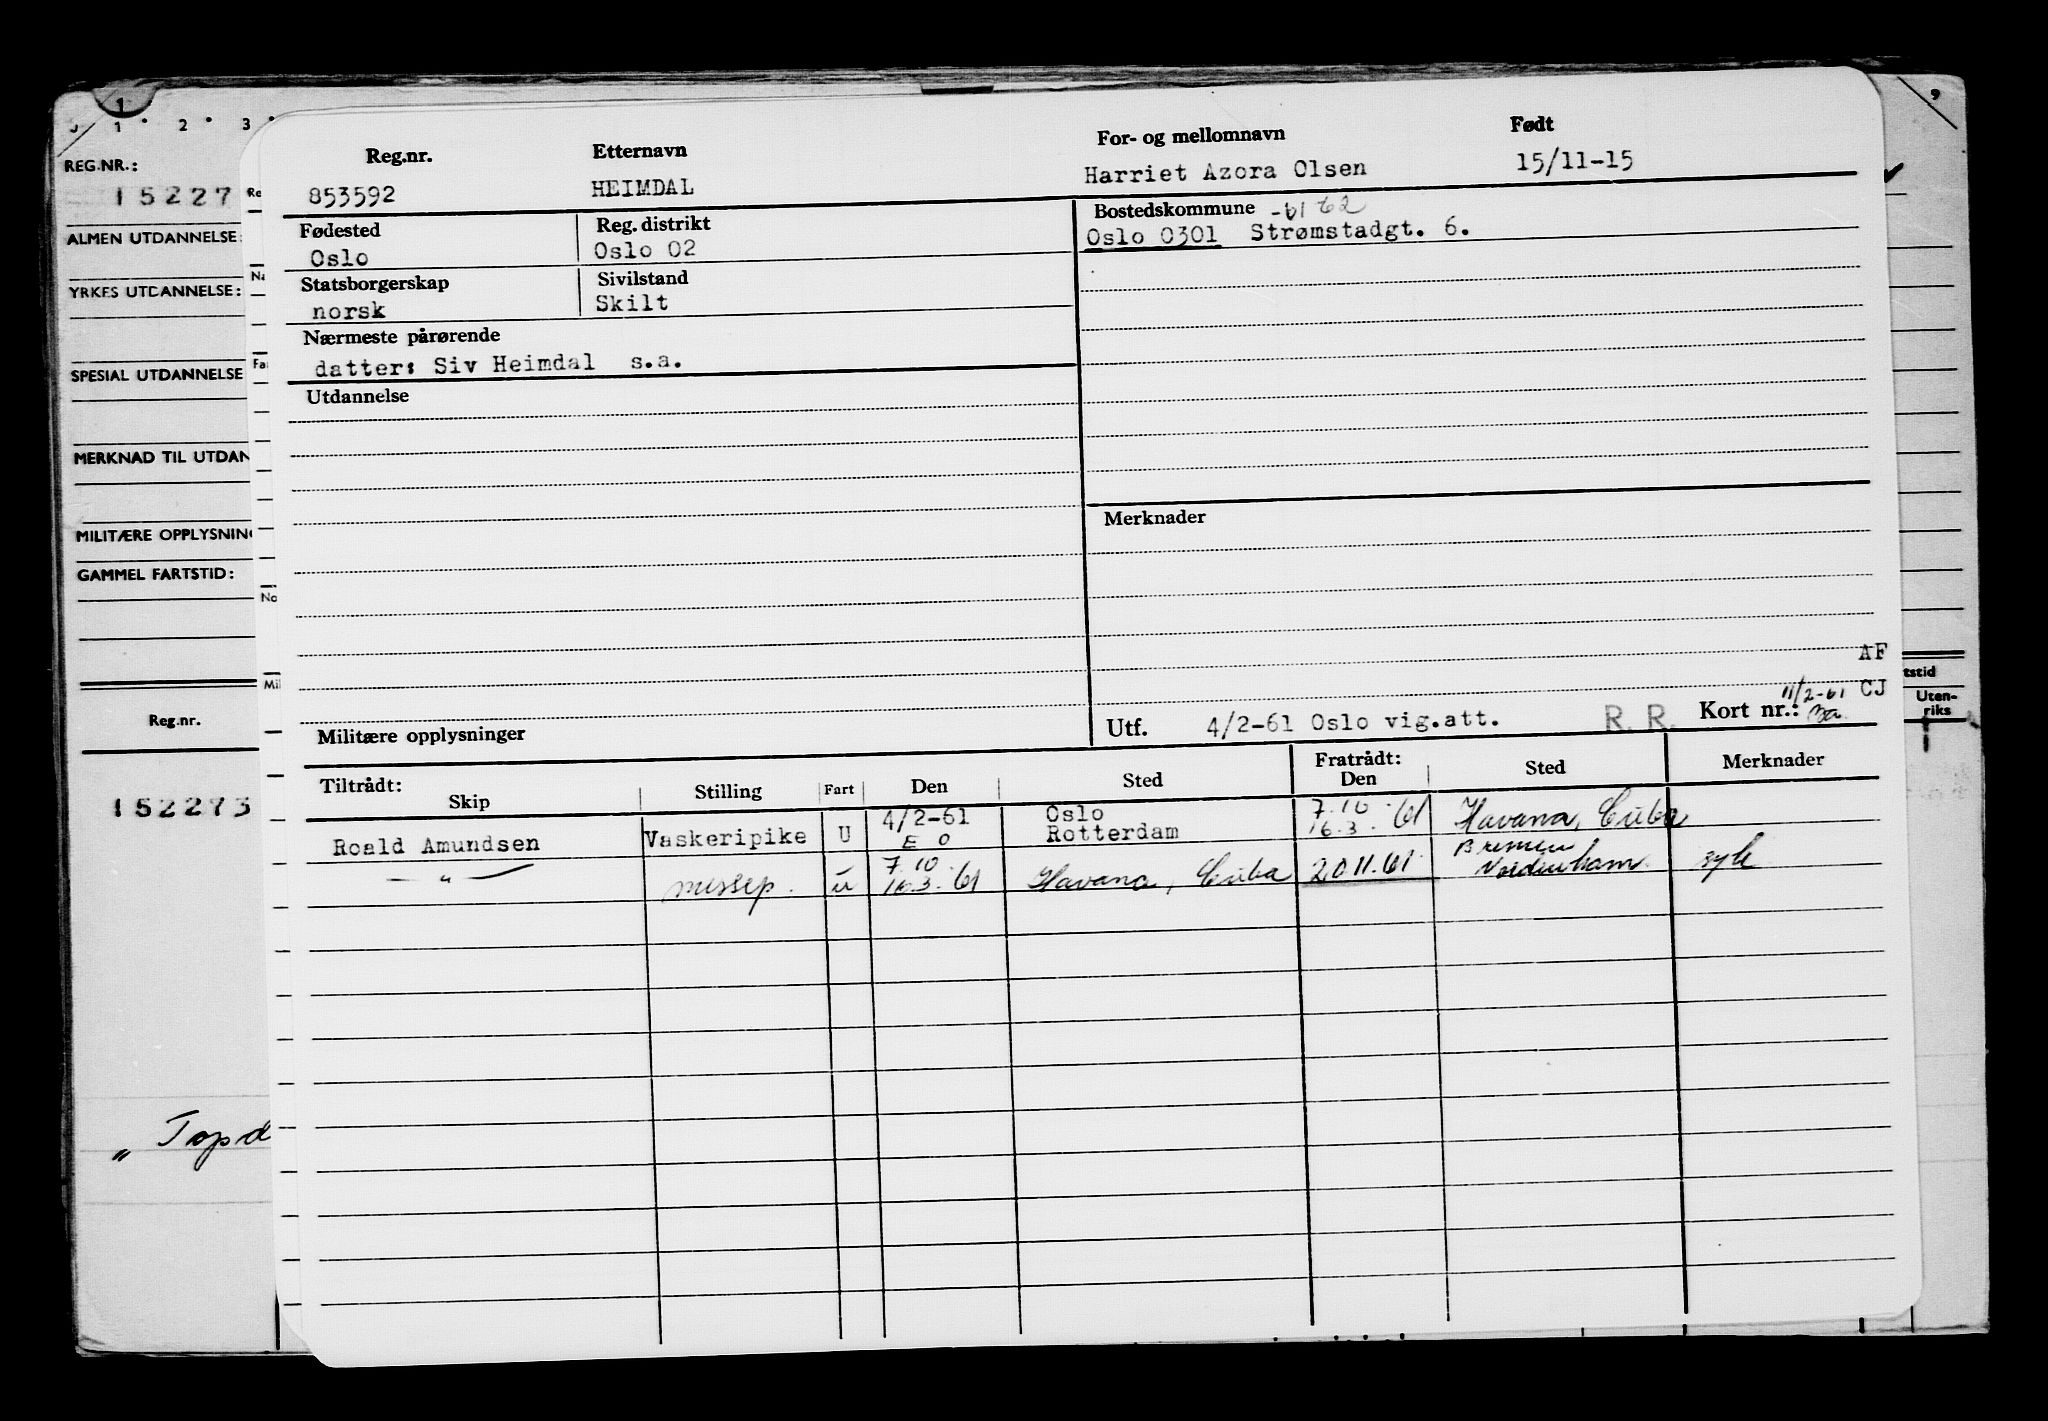 1
1 2 3
9
REG.NR.:
15227
ALMEN UTDANNELSE:
YRKES UTDANNELSE:
SPESIAL UTDANNELSE
MERKNAD TIL UTDAN
MILITÆRE OPPLYSNIN
GAMMEL FARTSTID:
Reg.nr.
152273
„ Topd
Na
Fa
No
Mil
Reg.nr. Etternavn For- og mellomnavn Født
853592 HEIMDAL Harriet Azora Olsen 15/11-15
Fødested Reg. distrikt Bostedskommune -61 62
Oslo Oslo 02 Oslo 0301 Strømstadgt. 6.
Statsborgerskap Sivilstand
norsk Skilt
Nærmeste pårørende
datter: Siv Heimdal s.a.
Utdannelse
Merknader
AF
11/2-61 CJ
Militære opplysninger Utf. 4/2-61 Oslo vig.att. R. R. Kort nr.:
Tiltrådt: Fratrådt:
Skip Stilling Fart Den Sted Den Sted Merknader
4/2-61 Oslo 7.10
Roald Amundsen Vaskeripike U E O Rotterdam 16.3.61 Havana, Cuba
7.10 Bremen
— „ — messep. u 16.3.61 Havana, Cuba 20.11.61 Nordenham syk
tstid
Uten-
riks